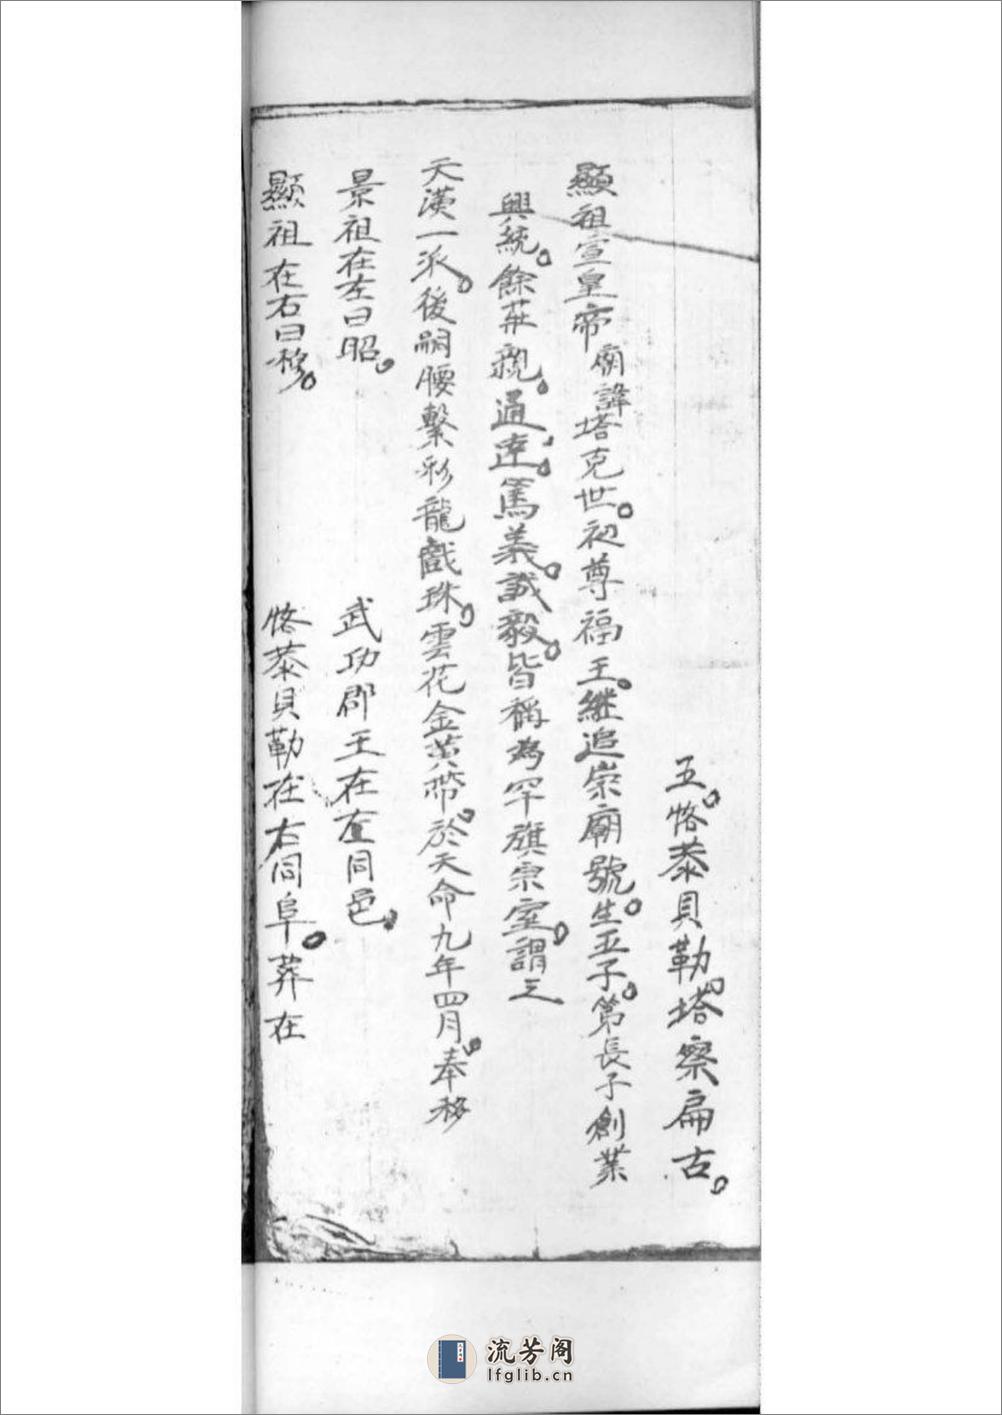 五。恪恭貝勒。塔察扁古。
顯祖宣皇帝廟諱塔克世。初尊福王。継追崇廟號。生五子。第長子創業
興統。餘莊親。通達。篤義。誠毅。皆稱為罕旗宗室。謂之
天潢一派。後嗣腰繫彩龍戲珠。雲花金黄帶。於天命九年四月。奉移
景祖在左曰昭。 武功郡王在左同邑。
顯祖在右曰穆。 恪恭貝勒在右同阜。葬在
流芳阁
lfglib.cn